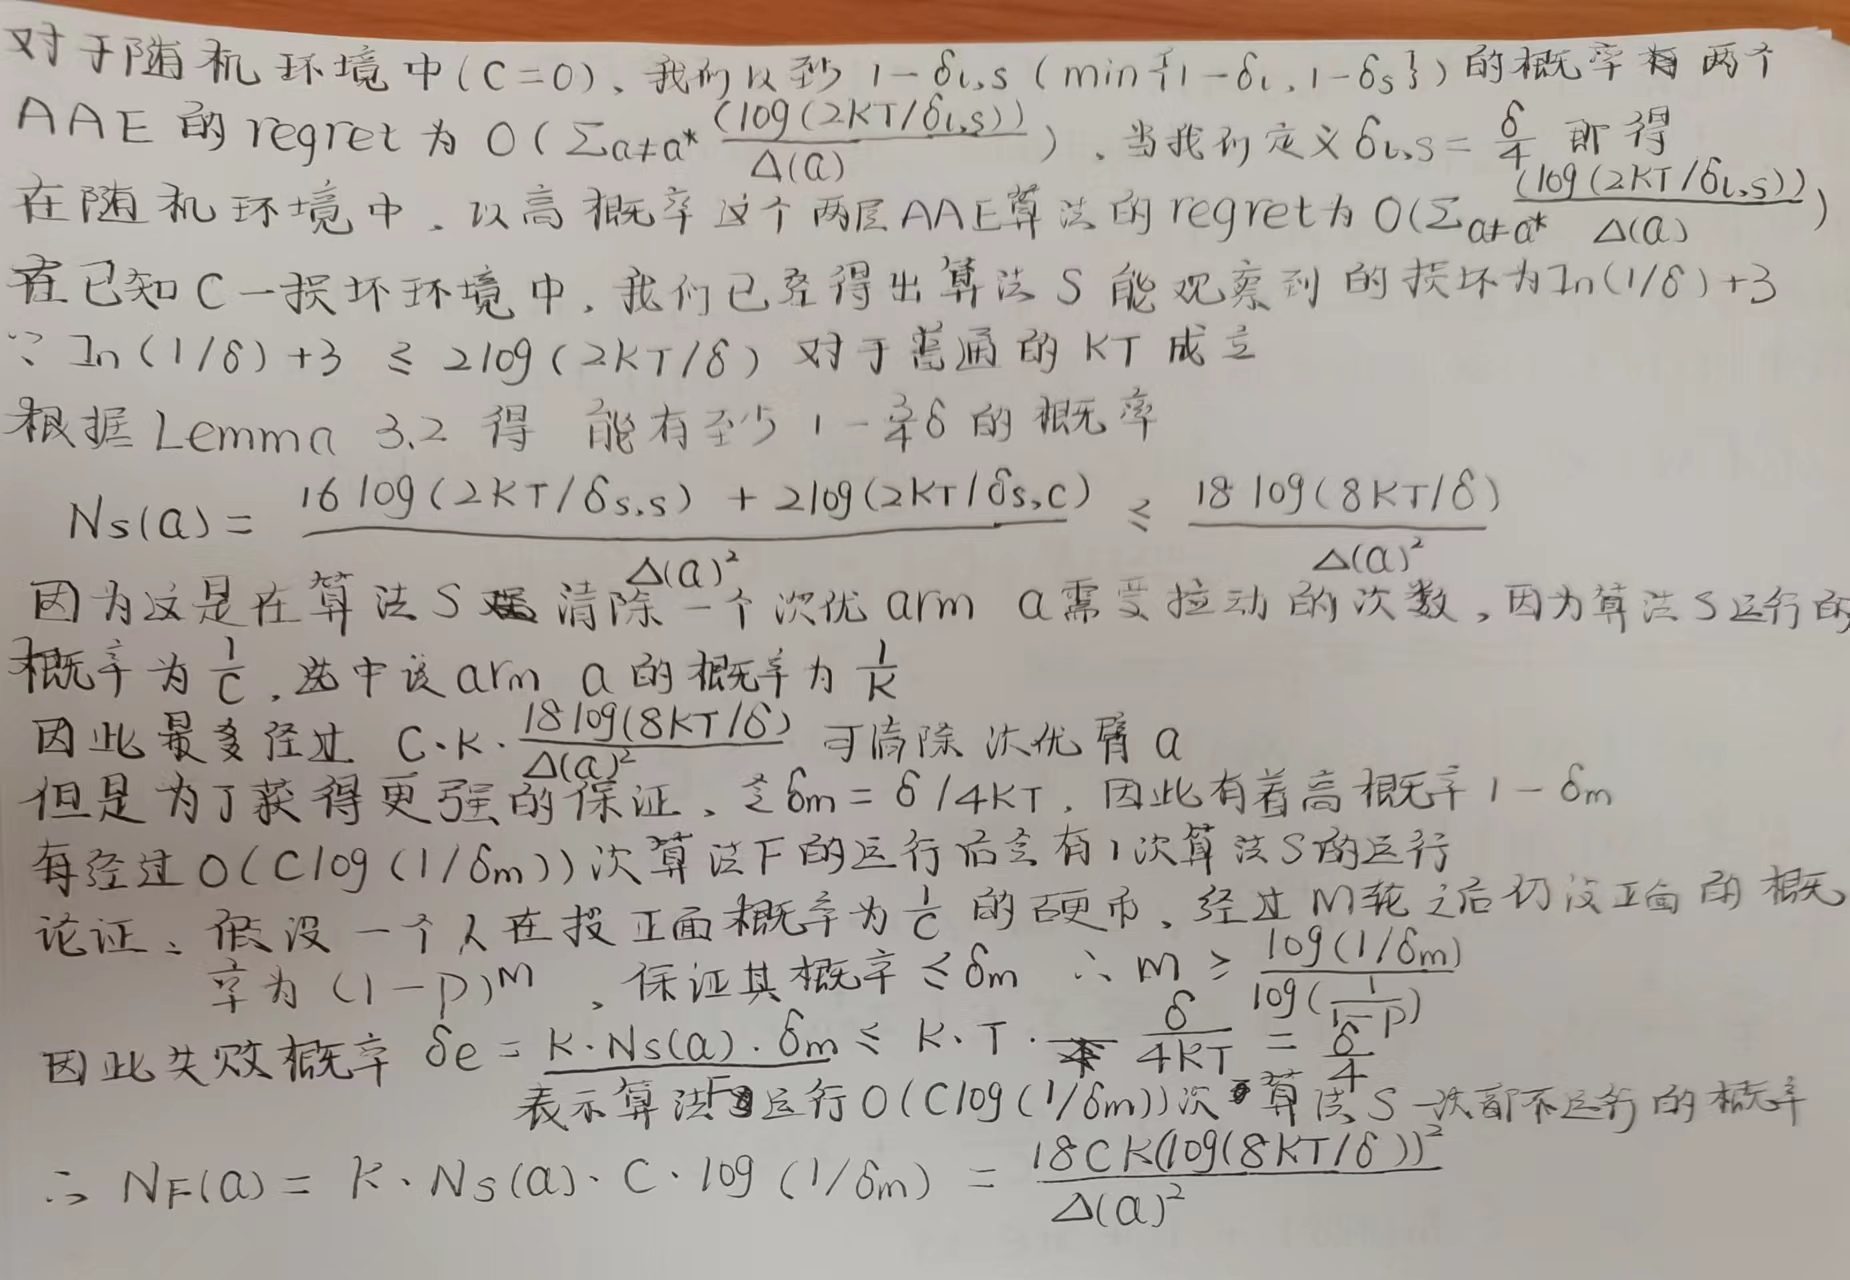 对于随机环境中(C=0)、我们以至少 1-δι,s (min{1-δι,1-δs}) 的概率有两个
AAE 的 regret 为 O(Σa≠a* (log(2KT/δι,s))/Δ(a))、当我们定义 δι,s = δ/4 即得
在随机环境中、以高概率这个两层AAE算法的regret为 O(Σa≠a* (log(2KT/δι,s))/Δ(a))
在已知C-损坏环境中,我们已经得出算法 S 能观察到的损坏为 In(1/δ)+3
∵ In(1/δ)+3 ≤ 2log(2KT/δ) 对于普通的 KT 成立
根据 Lemma 3.2 得 能有至少 1-¾δ 的概率
Ns(a) = (16 log(2KT/δs,s) + 2log(2KT/δs,c))/Δ(a)² ≤ 18 log(8KT/δ)/Δ(a)²
因为这是在算法 S 清除一个次优 arm a需要拉动的次数,因为算法S运行的
概率为 1/C ,选中该 arm a 的概率为 1/K
因此最多经过 C·K· 18 log(8KT/δ)/Δ(a)² 可清除次优臂 a
但是为了获得更强的保证、令δm = δ/4KT, 因此有着高概率 1-δm
每经过O(Clog(1/δm))次算法F的运行后会有1次算法S的运行
论证: 假设一个人在投正面概率为 1/C 的硬币、经过M轮之后仍没正面的概
率为 (1-p)^M ,保证其概率 ≤ δm ∴ M ≥ log(1/δm)/log(1/(1-p))
因此失败概率 δe = K·Ns(a)·δm ≤ K·T· δ/4KT = δ/4
表示算法F运行O(Clog(1/δm))次 算法S一次都不运行的概率
∴ NF(a) = K·Ns(a)·C·log(1/δm) = 18CK(log(8KT/δ))²/Δ(a)²